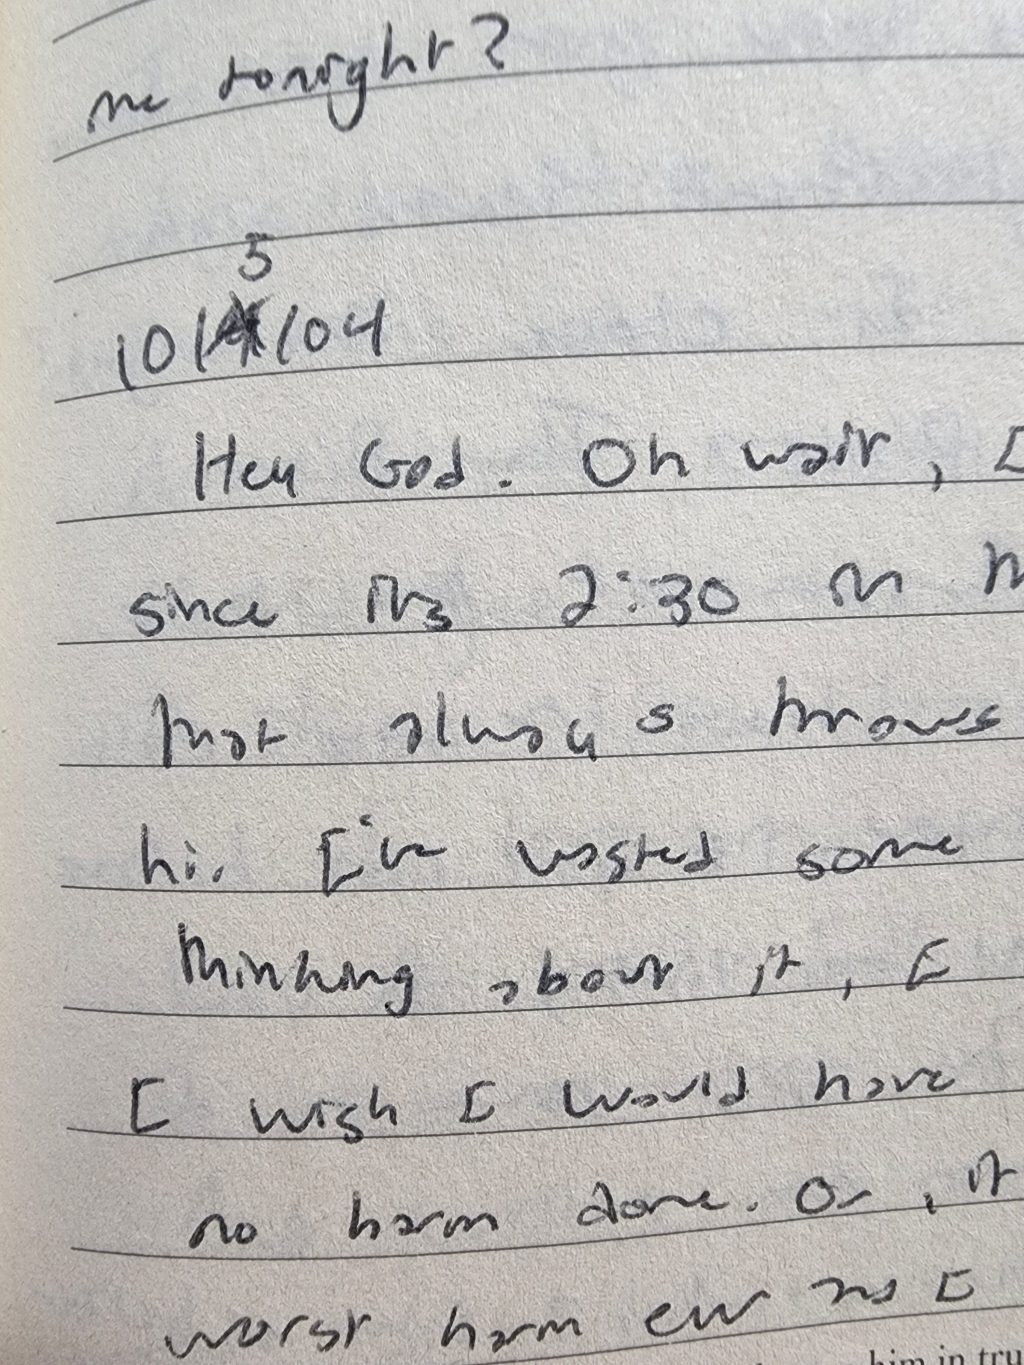 me tonight?
5
10/4/04
Hey God. Oh wait, I
since it's 2:30 in
that always throws
hi. I've wasted some
thinking about it, I
I wish I would have
no harm done. Or, it
worst harm ever was I
him in tru